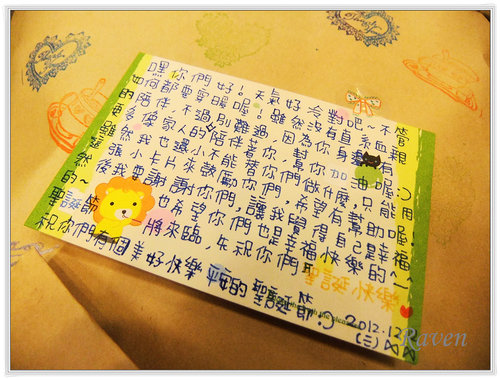 嘿你們好!天氣好冷對吧~不管
如何都要穿暖喔!雖然沒有直系血親
的陪伴不過別難過,因為你身邊有
更多像家人的陪伴著你,幫你加油喔:)
雖然我也還小不能替你們做什麼,只能用
這張小卡片來鼓勵你們,希望有幫助喔!
然後我要謝謝你們,讓我覺得自己是幸福
的~也希望你們也是幸福快樂的^_^
聖誕節將來臨,先祝你們聖誕快樂
祝你們有個美好快樂的聖誕節!:)
2012.12
(三)
Raven